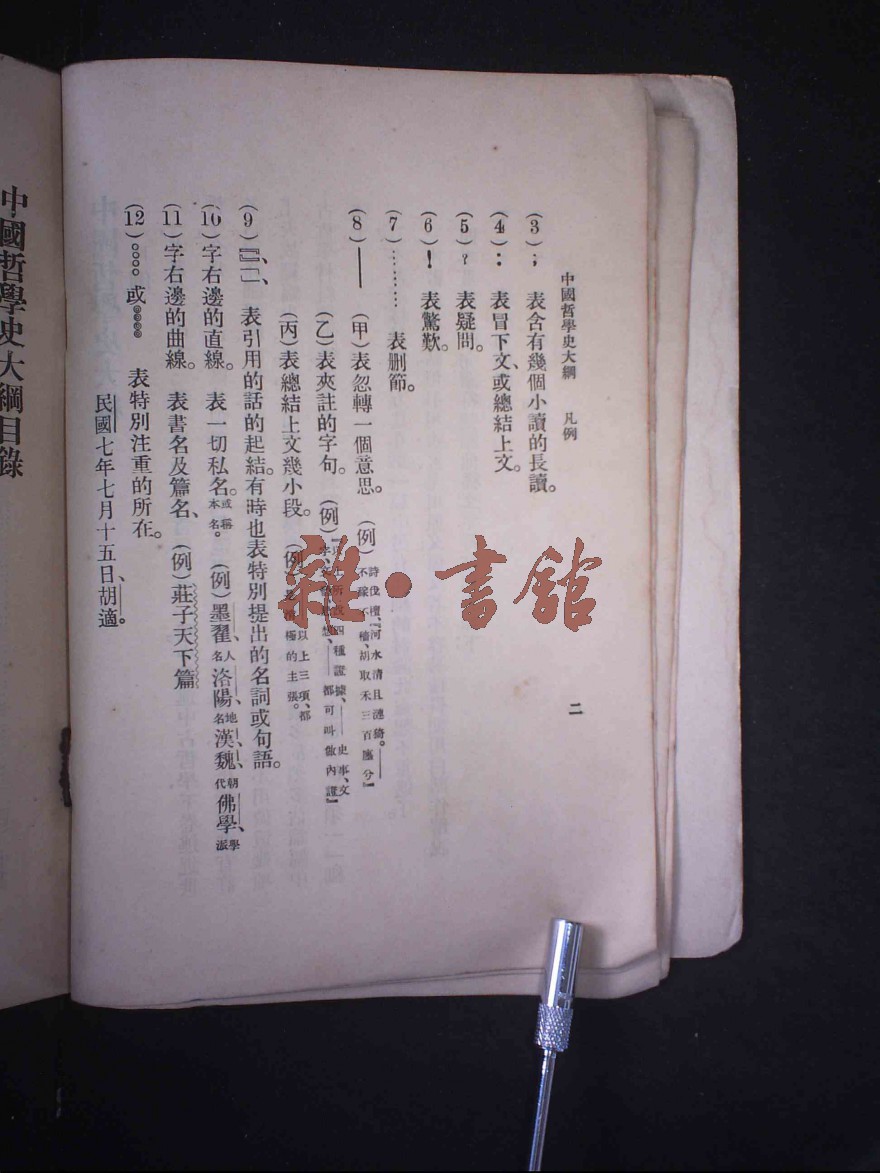 中國哲學史大綱　凡例
二
(3)；　表含有幾個小讀的長讀。
(4)：　表冒下文、或總結上文。
(5)？　表疑問。
(6)！　表驚歎。
(7)………　表刪節。
(8)——　(甲)表忽轉一個意思。　(例)
詩伐檀、『河水清且漣猗。——
不稼不穡、胡取禾三百廛兮』
(乙)表夾註的字句。　(例)
四種證據、——史事、文
——都可叫做內證』
(丙)表總結上文幾小段。　(例)
以上三項、都
極的主張。
(9)『』「」、　表引用的話的起結。有時也表特別提出的名詞或句語。
(10)字右邊的直線。　表一切私名。或稱本名。　(例)墨翟、人名洛陽、地名漢、魏、朝代佛學、學派
(11)字右邊的曲線。　表書名及篇名、　(例)莊子天下篇
(12)。。。。或◎◎◎◎　表特別注重的所在。
民國七年七月十五日、胡適。
中國哲學史大綱目錄
雜·書館